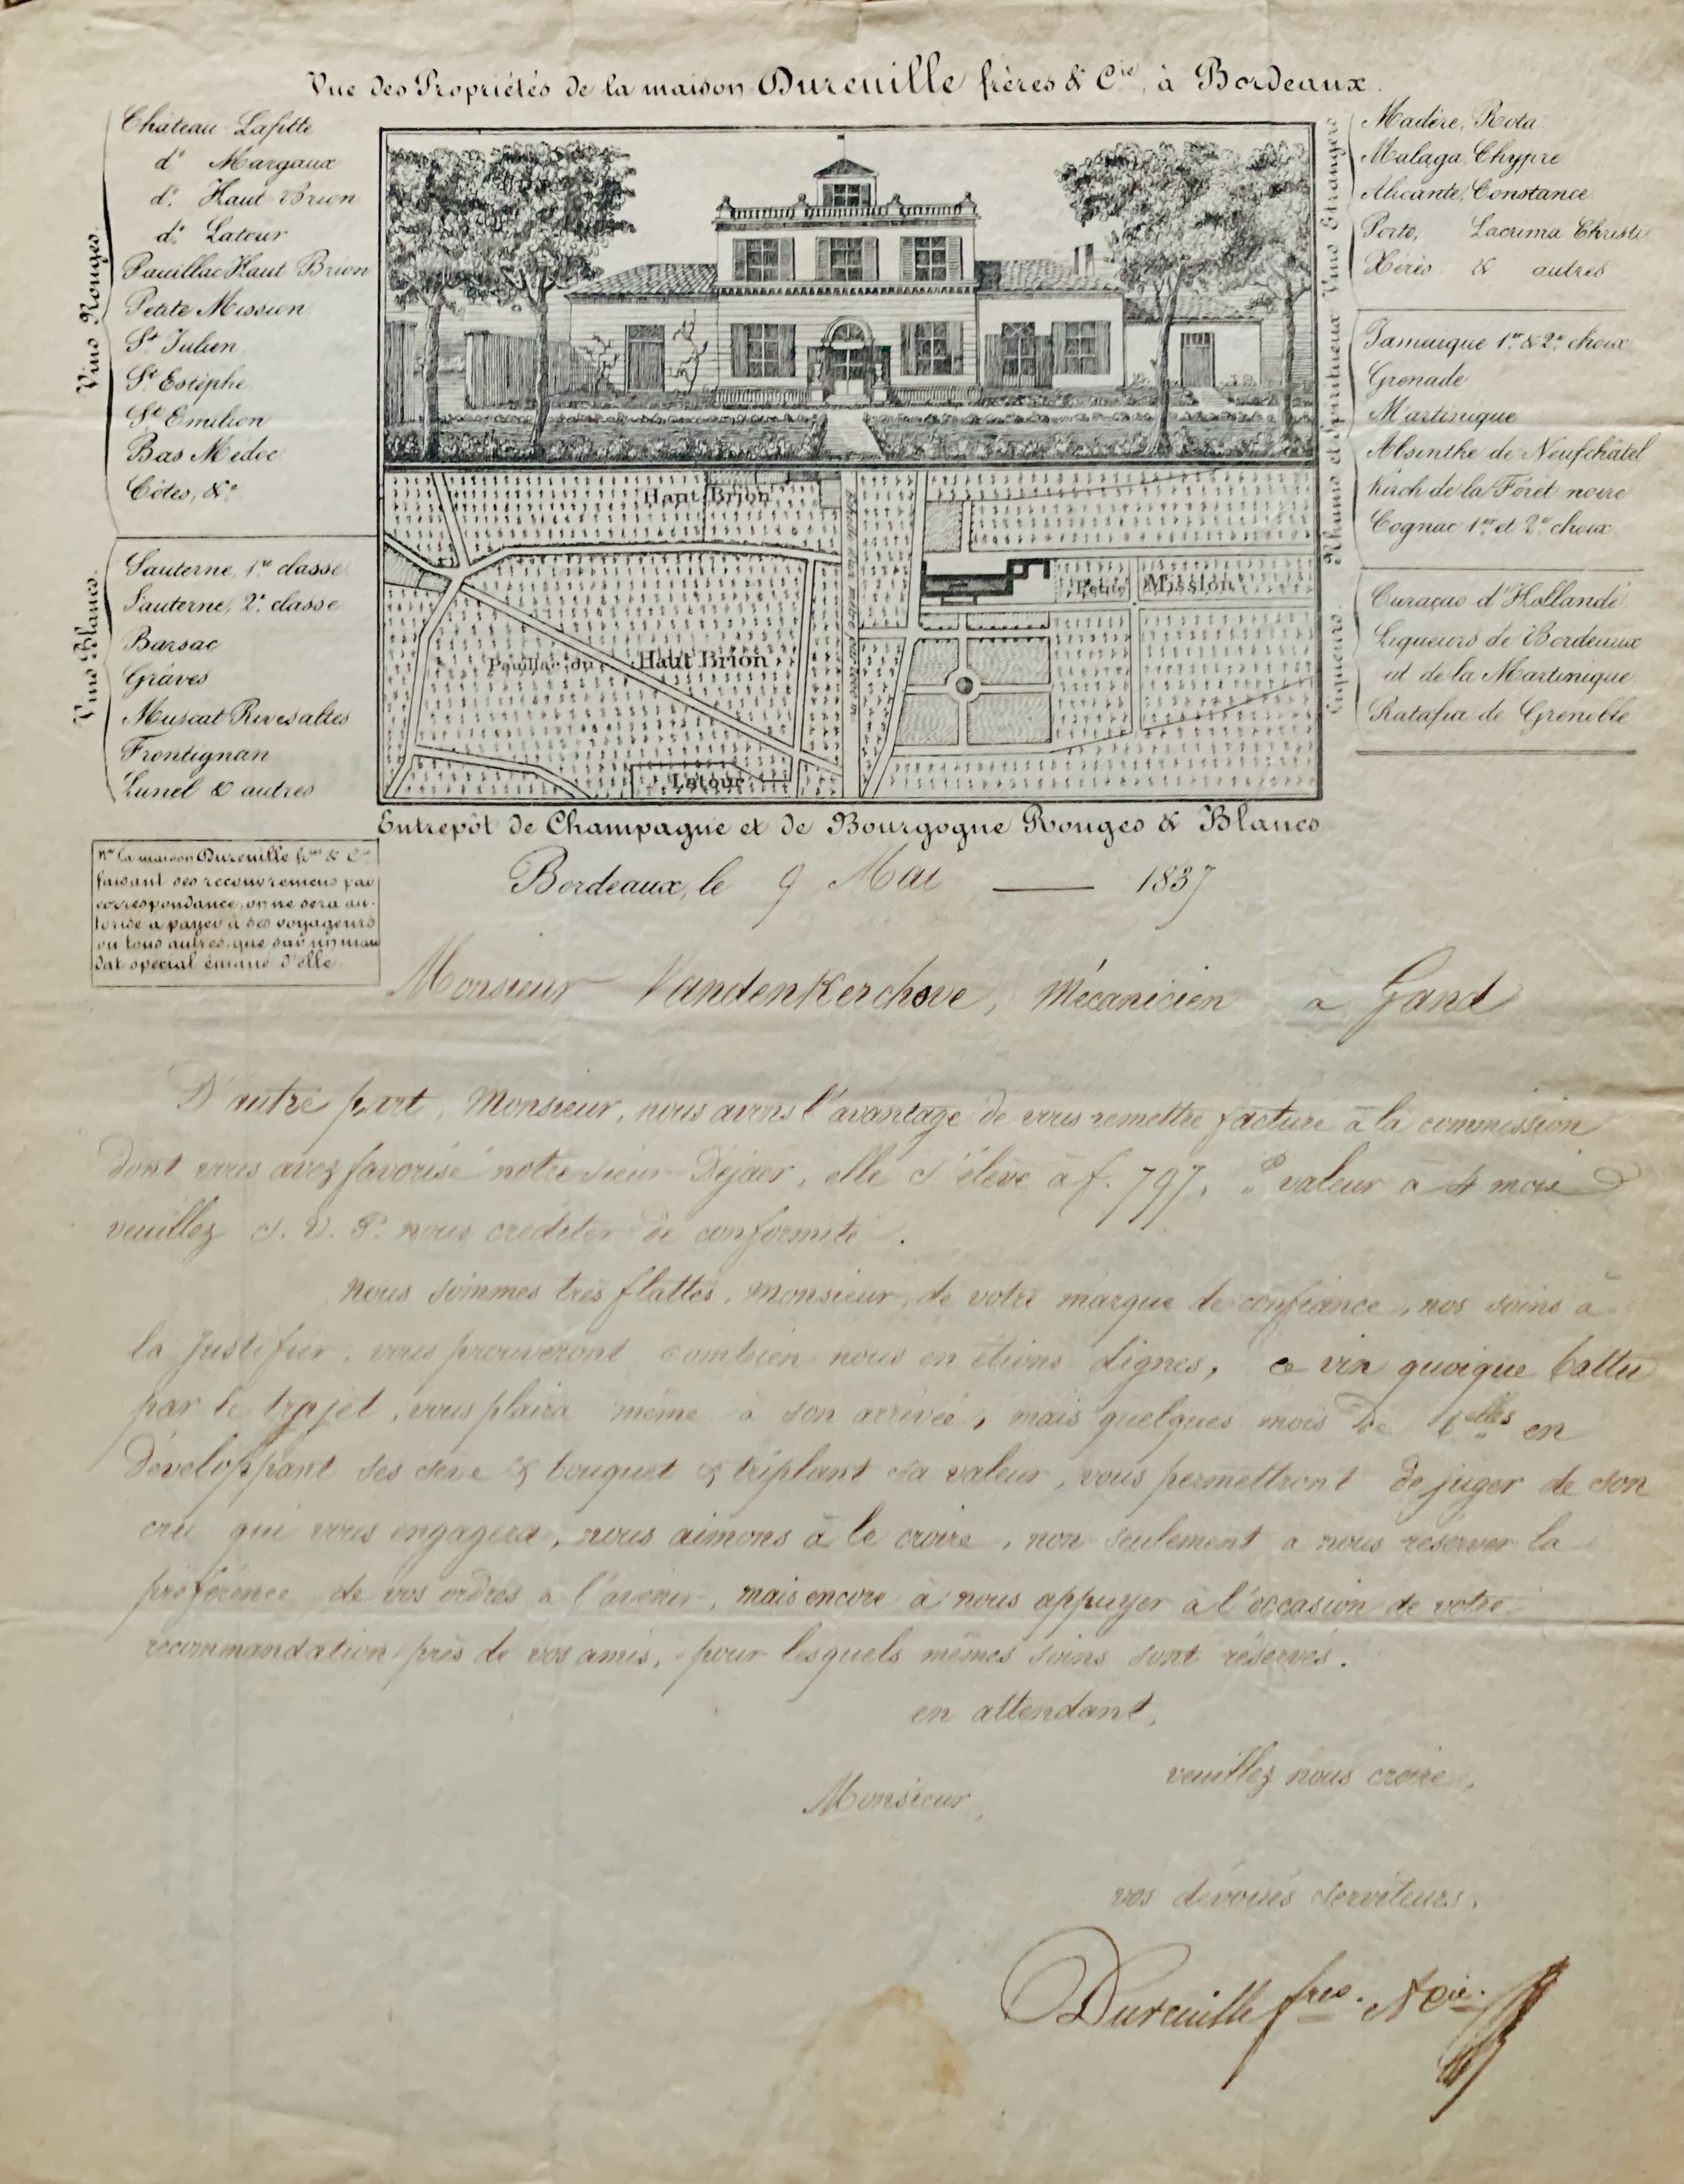 Vue des Propriétés de la maison Dureuille frères & Cie, à Bordeaux.
Vins Rouges.
Chateau Lafitte
do Margaux
do. Haut-Brion
do. Latour
Pauillac Haut Brion
Petite Mission
St. Julien
St. Estèphe
St. Emilion
Bas Médoc
Côtes, &a
Vins Blancs.
Sauterne, 1re classe
Sauterne, 2e. classe
Barsac
Graves
Muscat Rivesaltes
Frontignan
Lunel & autres
Haut Brion
Petite Mission
Pauillac du Haut Brion
Latour
Vins Etrangers
Madère, Rota
Malaga, Chypre
Alicante, Constance
Porto, Lacrima Christi
Xérès & autres
Rhums et Spiritueux
Jamaique 1er. & 2e. choix
Grenade
Martinique
Absinthe de Neufchâtel
Kirch de la Forêt noire
Cognac 1er. et 2e. choix
Liqueurs.
Curaçao d'Hollande
Liqueurs de Bordeaux
id de la Martinique
Ratafia de Grenoble
Entrepôt de Champagne et de Bourgogne Rouges & Blancs
la maison Dureuille fres & Cie
faisant ses recouvremens par
correspondance, on ne sera au-
torisé a payer à ses voyageurs
ou tous autres, que sur un man
dat spécial émané d'elle.
Bordeaux, le 9 Mai 1837
Monsieur VandenKerchove, Mécanicien à Gand
D'autre part, Monsieur, nous avons l'avantage de vous remettre facture à la commission
dont vous avez favorisé notre sieur Dejaer, elle s'élève à f. 797, valeur à 4 mois
veuillez S. V. P. nous créditer de conformité.
nous sommes très flattés, Monsieur, de votre marque de confiance, nos soins à
la justifier, vous prouveront combien nous en étions dignes, ce vin quoique battu
par le trajet, vous plaira même à son arrivée, mais quelques mois de blles en
développant ses seve & bouquet & triplant sa valeur, vous permettront de juger de son
cru qui vous engagera, nous aimons à le croire, non seulement a nous réserver la
préférence de vos ordres a l'avenir, mais encore à nous appuyer a l'occasion de votre
recommandation près de vos amis, pour lesquels mêmes soins sont réservés.
en attendant,
veuillez nous croire,
Monsieur,
vos dévoués serviteurs.
Dureuille fres. & Cie.